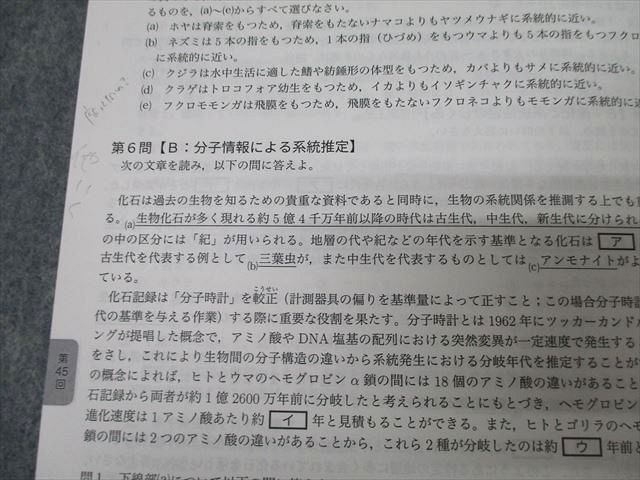 るものを，(a)～(e)からすべて選びなさい。
(a) ホヤは脊索をもつため，脊索をもたないナマコよりもヤツメウナギに系統的に近い。
(b) ネズミは5本の指をもつため，1本の指（ひづめ）をもつウマよりも5本の指をもつフクロ
に系統的に近い。
(c) クジラは水中生活に適した鰭や紡錘形の体型をもつため，カバよりもサメに系統的に近い。
(d) クラゲはトロコフォア幼生をもつため，イカよりもイソギンチャクに系統的に近い。
(e) フクロモモンガは飛膜をもつため，飛膜をもたないフクロネコよりもモモンガに系統的に近
第6問【B：分子情報による系統推定】
次の文章を読み，以下の問に答えよ。
化石は過去の生物を知るための貴重な資料であると同時に，生物の系統関係を推測する上でも
る。(a)生物化石が多く現れる約5億4千万年前以降の時代は古生代，中生代，新生代に分けられ
の中の区分には「紀」が用いられる。地層の代や紀などの年代を示す基準となる化石は ア
古生代を代表する例として(b)三葉虫が，また中生代を代表するものとしては(c)アンモナイトがよ
ている。
化石記録は「分子時計」を較正（計測器具の偏りを基準量によって正すこと；この場合分子時計
こうせい
代の基準を与える作業）する際に重要な役割を果たす。分子時計とは1962年にツッカーカンドル
ングが提唱した概念で，アミノ酸やDNA塩基の配列における突然変異が一定速度で発生する
をさし，これにより生物間の分子構造の違いから系統発生における分岐年代を推定することが
の概念によれば，ヒトとウマのヘモグロビンα鎖の間には18個のアミノ酸の違いがあること
石記録から両者が約1億2600万年前に分岐したと考えられることにもとづき，ヘモグロビン
進化速度は1アミノ酸あたり約 イ 年と見積もることができる。また，ヒトとゴリラのヘモ
鎖の間には2つのアミノ酸の違いがあることから，これら2種が分岐したのは約 ウ 年前と
第
45
回